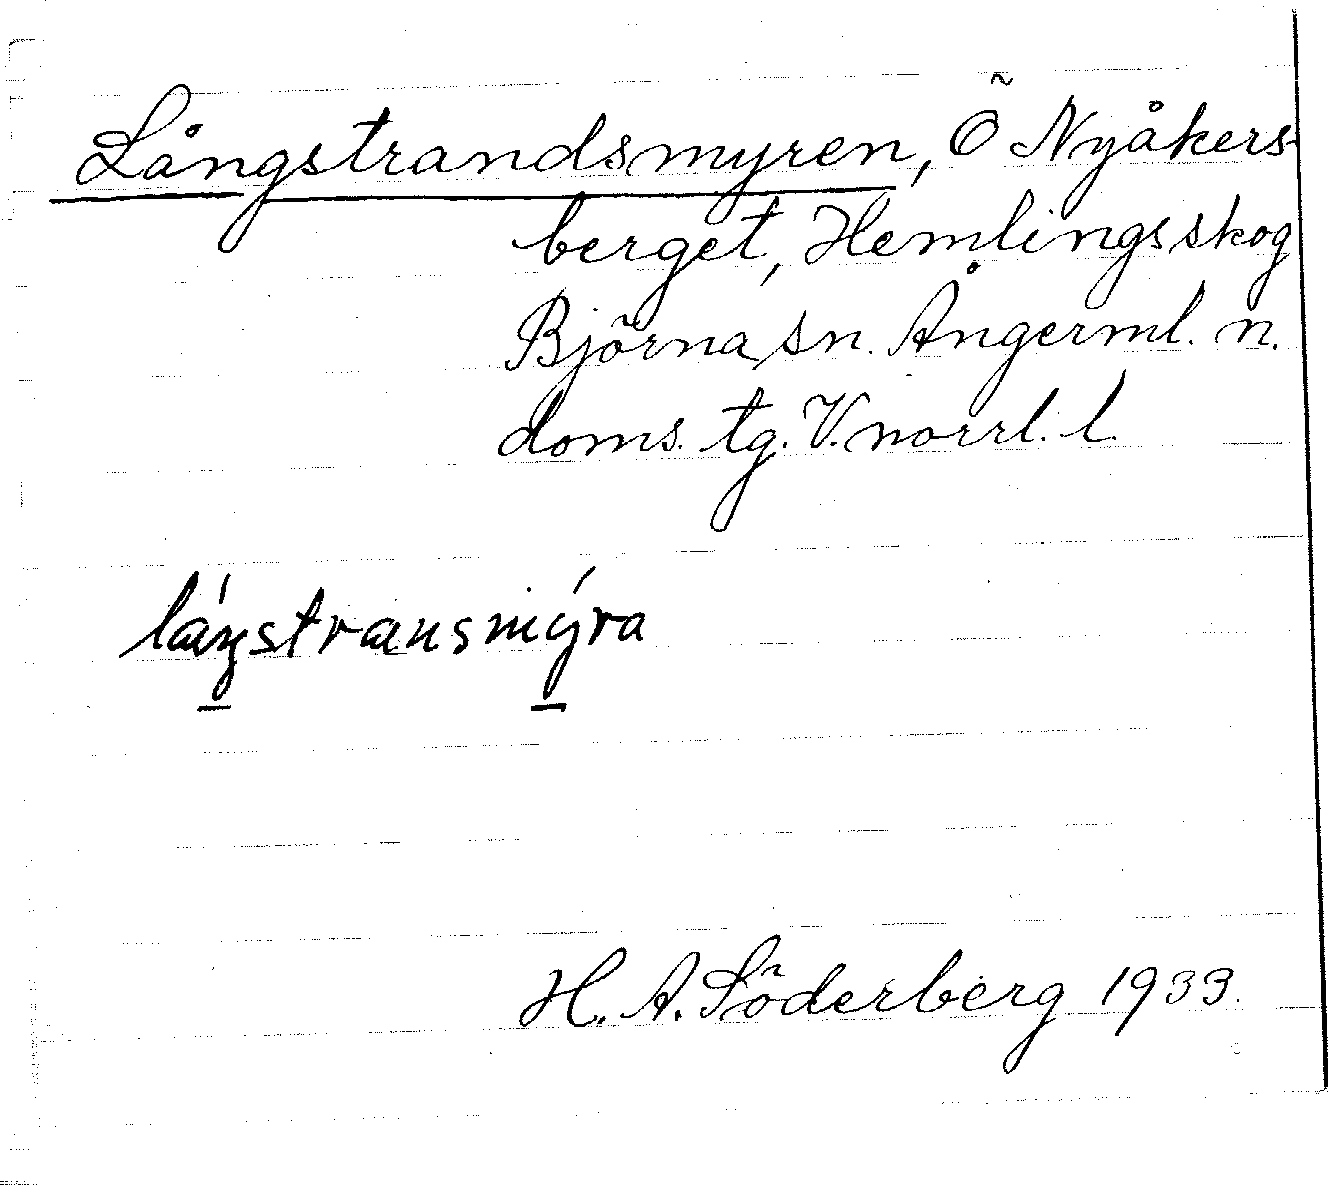 Långstrandsmyren, Ö Nyåkers-
berget, Hemlingsskog
Björna sn. Ångerml. n.
doms. tg. V. norrl. l.
láŋstransmýra
H. A. Söderberg 1933.